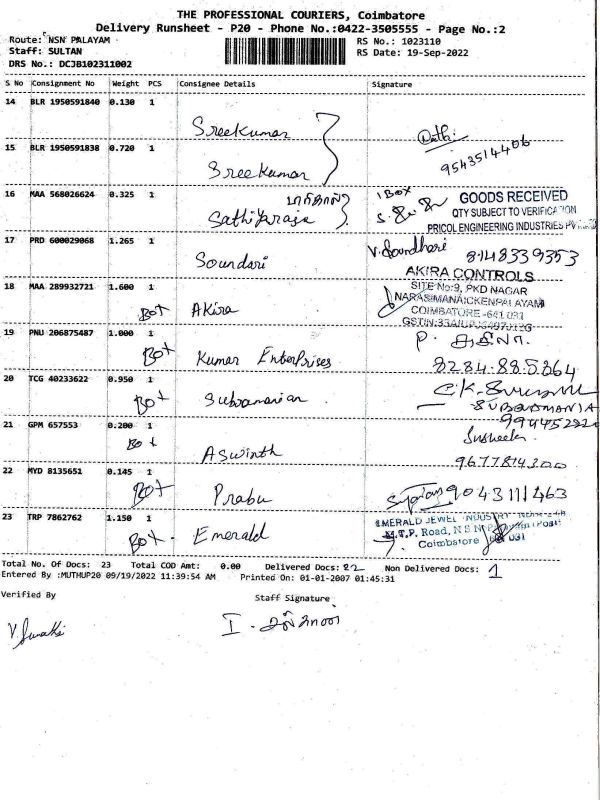 THE PROFESSIONAL COURIERS, Coimbatore
Delivery Runsheet - P20 - Phone No.:0422-3505555 - Page No.:2
Route: NSN PALAYAM
Staff: SULTAN
DRS No.: DCJB102311002
RS No.: 1023110
RS Date: 19-Sep-2022
S No Consignment No Weight PCS Consignee Details Signature
14 BLR 1950591840 0.130 1
Sreekumar
15 BLR 1950591838 0.720 1
Sreekumar
9543514406
16 MAA 568026624 0.325 1
1 BOX
GOODS RECEIVED
QTY SUBJECT TO VERIFICATION
PRICOL ENGINEERING INDUSTRIES
17 PRD 600029068 1.265 1
Soundari
V. Soundhari 8148339353
18 MAA 289932721 1.600 1
Box Akira
AKIRA CONTROLS
SITE No:9, PKD NAGAR
NARASIMANAICKENPALAYAM
COIMBATORE - 641 031
19 PNU 206875487 1.000 1
Box Kumar Enterprises
8284.885864
20 TCG 40233622 0.950 1
Box Subramanian
21 GPM 657553 0.200 1
Box Aswinth
Susheela
9677814300
22 MYD 8135651 0.145 1
Box Prabu
9043111463
23 TRP 7862762 1.150 1
Box. Emerald
EMERALD JEWEL INDUSTRY
M.T.P. Road,
Coimbatore
Total No. Of Docs: 23 Total COD Amt: 0.00 Delivered Docs: 22 Non Delivered Docs: 1
Entered By :MUTHUP20 09/19/2022 11:39:54 AM Printed On: 01-01-2007 01:45:31
Verified By Staff Signature